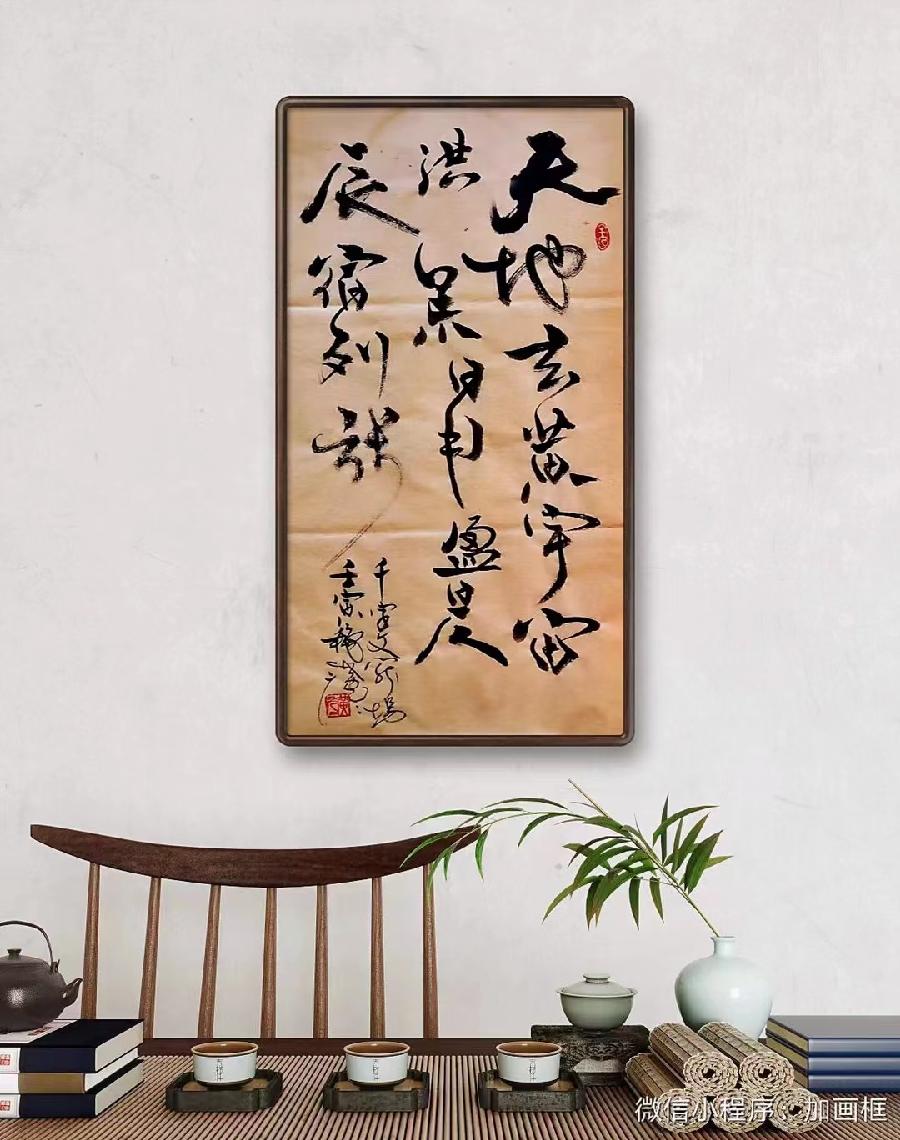 天地玄黄宇宙
洪荒日月盈昃
辰宿列张
千字文
壬寅
微信小程序：加画框